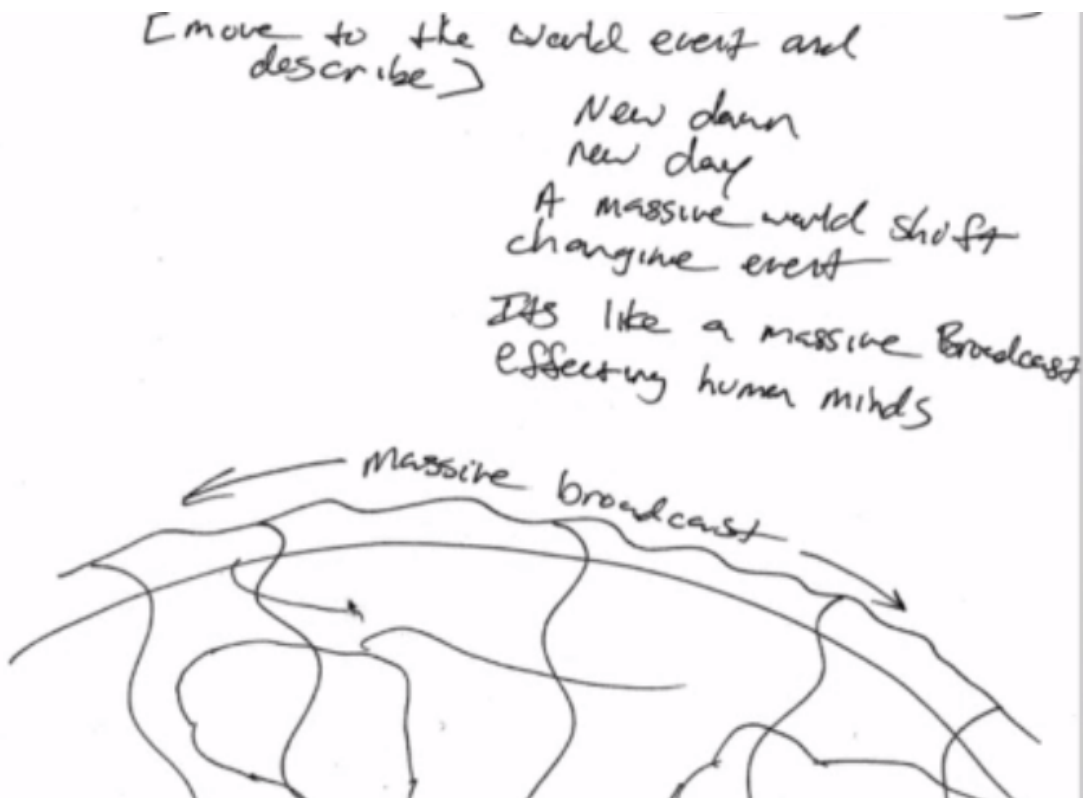 [move to the world event and
describe]
New dawn
new day
A massive world shift
changine event
Its like a massive Broadcast
effecting human minds
massive broadcast